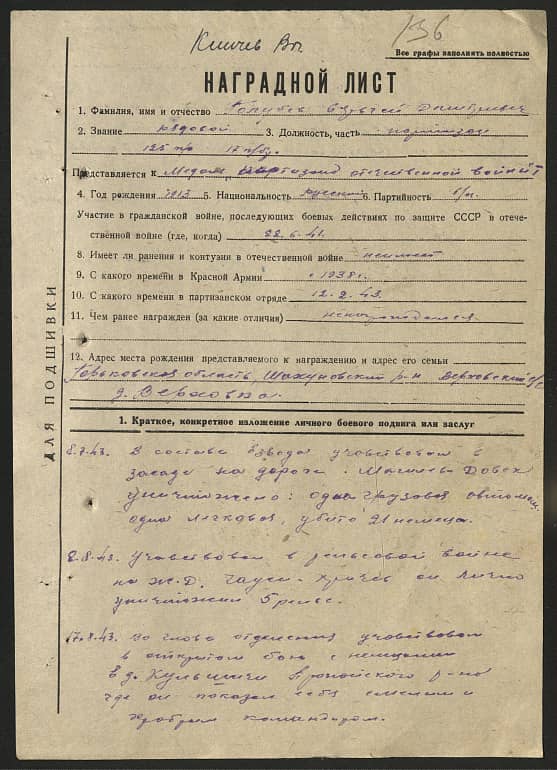 136
Все графы заполнять полностью
НАГРАДНОЙ ЛИСТ
1. Фамилия, имя и отчество Голубев
2. Звание рядовой 3. Должность, часть партизан
125 п/о
Представляется к Медаль партизану отечественной войны I
4. Год рождения 1913 5. Национальность русский 6. Партийность б/п.
Участие в гражданской войне, последующих боевых действиях по защите СССР в отече-
ственной войне (где, когда) 22.6.41.
8. Имеет ли ранения и контузии в отечественной войне неимеет
9. С какого времени в Красной Армии с 1938 г.
10. С какого времени в партизанском отряде 12.2.43.
11. Чем ранее награжден (за какие отличия)
12. Адрес места рождения представляемого к награждению и адрес его семьи
Горьковская область, Шахуновский р-н Верховский с/с
д. Верховка.
ДЛЯ ПОДШИВКИ
1. Краткое, конкретное изложение личного боевого подвига или заслуг
8.7.43. В составе взвода учавствовал в
засаде на дороге Могилев-Довск
уничтожено: одна грузовая автомаш.
одна легковая, убито 21 немеца.
2.8.43. Учавствовал в рельсовой войне
на Ж.Д. Чаусы-Кричев он лично
уничтожил 5 рельс.
17.8.43. Во главе отделения учавствовал
в открытом бою с немцами
в д. Кульшичи Пропойского р-на
где он показал себя смелым и
храбрым командиром.